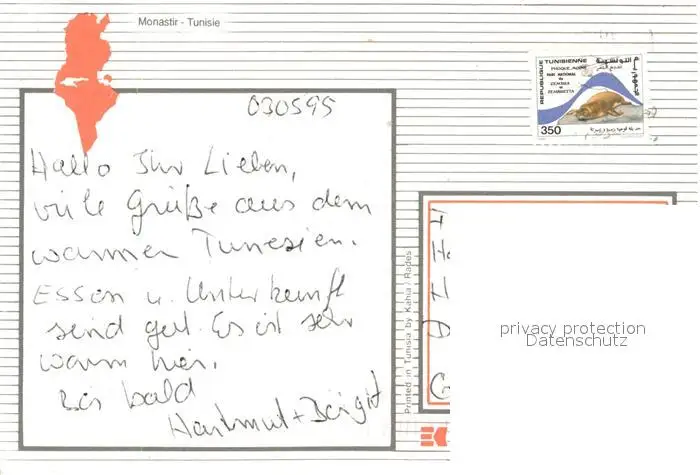 Monastir - Tunisie
030595
Hallo Ihr Lieben,
viele Grüße aus dem
warmen Tunesien.
Essen u. Unterkunft
sind gut. Es ist sehr
warm hier.
Bis bald
Hartmut + Birgit
REPUBLIQUE TUNISIENNE
PHOQUE MOINE
PARC NATIONAL
ZEMBRA
ZEMBRETTA
350
Printed in Tunisia by Kahia / Rades
privacy protection
Datenschutz